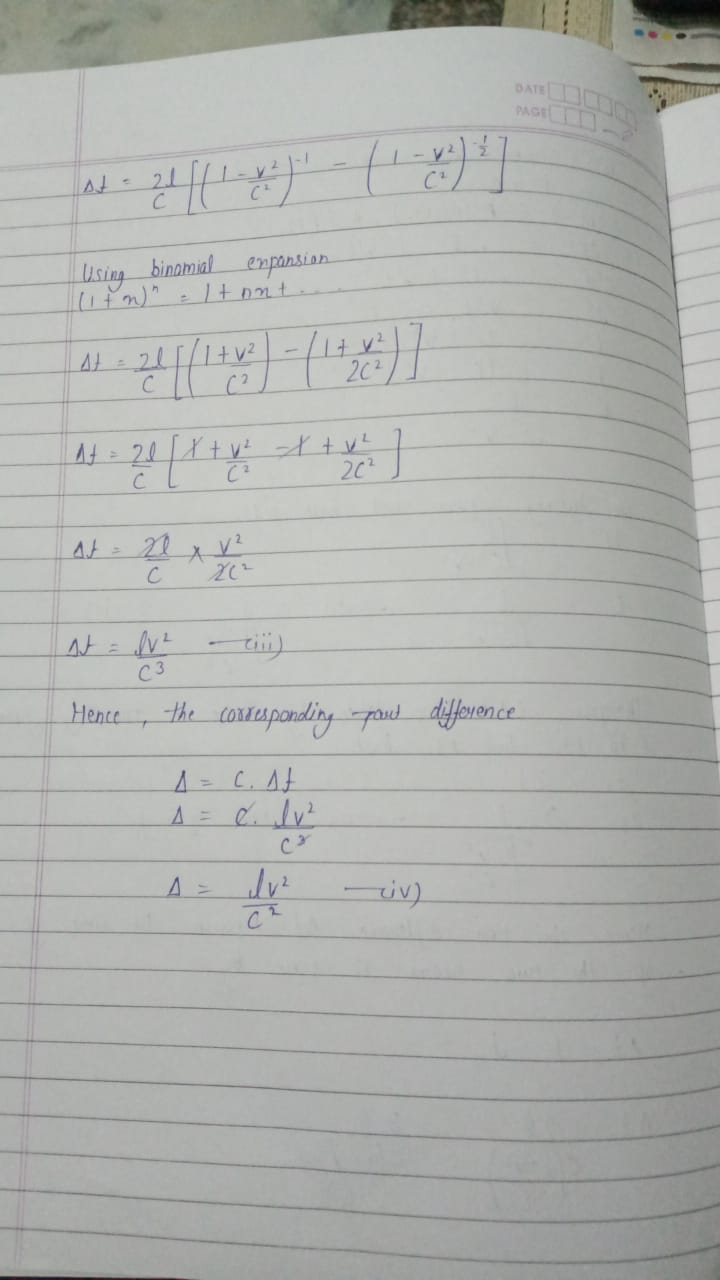 DATE
PAGE
Δt = 2l/c [(1 - v²/c²)⁻¹ - (1 - v²/c²)^-1/2]
Using binomial enpansion
(1 + n)ⁿ = 1 + nn + ...
Δt = 2l/c [(1 + v²/c²) - (1 + v²/2c²)]
Δt = 2l/c [1 + v²/c² - 1 + v²/2c²]
Δt = 2l/c × v²/2c²
Δt = lv²/c³ —(iii)
Hence, the corresponding difference
Δ = c. Δt
Δ = c. lv²/c³
Δ = lv²/c² —(iv)